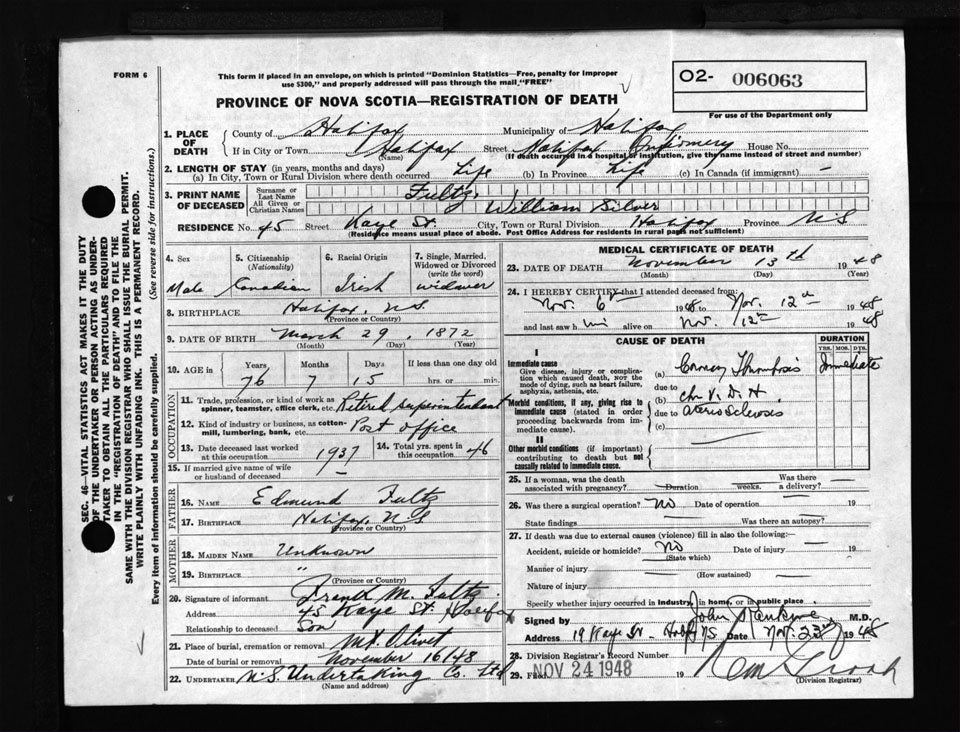 FORM 6
This form if placed in an envelope, on which is printed "Dominion Statistics—Free, penalty for improper
use $300," and properly addressed will pass through the mail "FREE"
O2- 006063
PROVINCE OF NOVA SCOTIA—REGISTRATION OF DEATH
For use of the Department only
1. PLACE OF DEATH
County of Halifax Municipality of Halifax
If in City or Town Halifax Street Halifax Infirmery House No.
(Name) (If death occurred in a hospital or institution, give the name instead of street and number)
2. LENGTH OF STAY (in years, months and days)
(a) In City, Town or Rural Division where death occurred Life (b) In Province Life (c) In Canada (if immigrant) —
3. PRINT NAME OF DECEASED
Surname or Last Name Fultz
All Given or Christian Names William Silver
RESIDENCE No. 45 Street Kaye St. City, Town or Rural Division Halifax Province N S
(Residence means usual place of abode. Post Office Address for residents in rural parts not sufficient)
4. Sex 5. Citizenship (Nationality) 6. Racial Origin 7. Single, Married, Widowed or Divorced (write the word)
Male Canadian Irish widower
8. BIRTHPLACE Halifax, N.S.
(Province or Country)
9. DATE OF BIRTH March 29, 1872
(Month) (Day) (Year)
10. AGE in Years Months Days If less than one day old
76 7 15 hrs. or min.
OCCUPATION
11. Trade, profession, or kind of work as
spinner, teamster, office clerk, etc. Retired superintendant
12. Kind of industry or business, as cotton-
mill, lumbering, bank, etc. Post office
13. Date deceased last worked
at this occupation 1937 14. Total yrs. spent in this occupation 46
15. If married give name of wife
or husband of deceased
FATHER
16. NAME Edmund Fultz
17. BIRTHPLACE Halifax N S
(Province or Country)
MOTHER
18. MAIDEN NAME Unknown
19. BIRTHPLACE "
(Province or Country)
20. Signature of informant Frank M. Fultz
Address 45 Kaye St. Halifax
Relationship to deceased Son
21. Place of burial, cremation or removal Mt. Olivet
Date of burial or removal November 16/48
22. UNDERTAKER N.S. Undertaking Co. Ltd
(Name and address)
MEDICAL CERTIFICATE OF DEATH
23. DATE OF DEATH November 13th 1948
(Month) (Day) (Year)
24. I HEREBY CERTIFY that I attended deceased from
Nov. 6th 1948 to Nov. 12th 1948
and last saw him alive on Nov. 12th 1948
CAUSE OF DEATH DURATION
YRS. MOS. DYS.
I
Immediate cause
Give disease, injury or complica-
tion which caused death, not the
mode of dying, such as heart failure,
asphyxia, asthenia, etc.
(a) Coronary Thrombosis Immediate
due to
Morbid conditions, if any, giving rise to
immediate cause (stated in order
proceeding backwards from im-
mediate cause).
(b) Chr V. D. H.
due to Arteriosclerosis
(c)
II
Other morbid conditions (if important)
contributing to death but not
causally related to immediate cause.
25. If a woman, was the death
associated with pregnancy? Duration weeks. Was there a delivery?
26. Was there a surgical operation? No Date of operation 19
State findings Was there an autopsy?
27. If death was due to external causes (violence) fill in also the following:—
Accident, suicide or homicide? No Date of injury 19
(State which)
Manner of injury
(How sustained)
Nature of injury
Specify whether injury occurred in Industry, in home, or in public place
Signed by John Rankine M.D.
Address 19 Kaye St - Halifax NS Date Nov. 23rd 1948
28. Division Registrar's Record Number
29. Filed NOV 24 1948 19
(Division Registrar)
SEC. 46—VITAL STATISTICS ACT MAKES IT THE DUTY
OF THE UNDERTAKER OR PERSON ACTING AS UNDER-
TAKER TO OBTAIN ALL THE PARTICULARS REQUIRED
IN THE "REGISTRATION OF DEATH" AND TO FILE THE
SAME WITH THE DIVISION REGISTRAR WHO SHALL ISSUE THE BURIAL PERMIT.
WRITE PLAINLY WITH UNFADING INK. THIS IS A PERMANENT RECORD.
Every item of information should be carefully supplied. (See reverse side for instructions.)